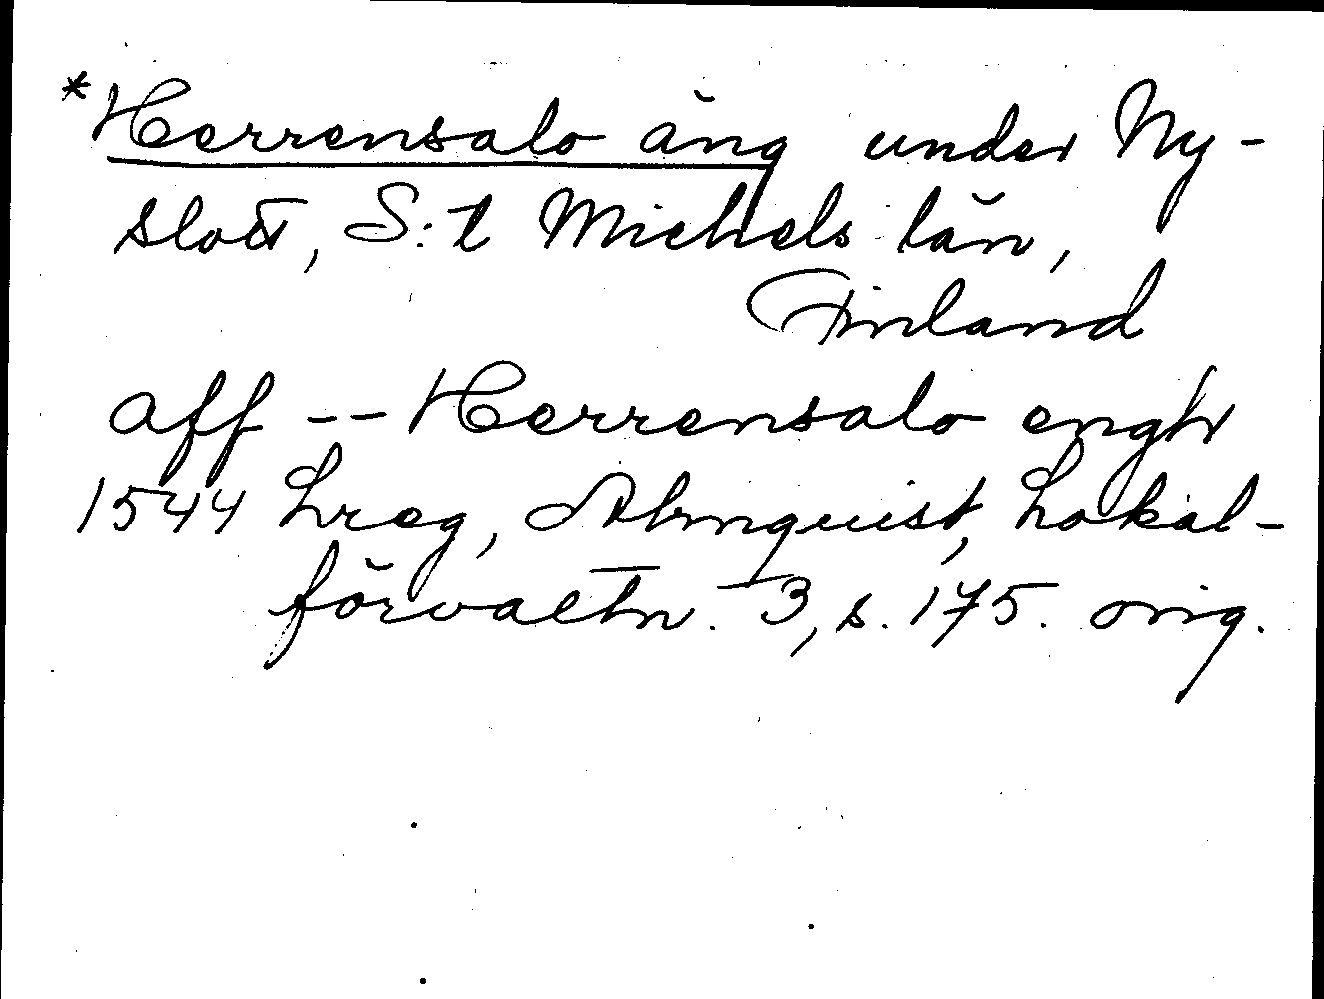 *Herrensalo äng under Ny-
slott, S:t Michels län,
Finland
aff -- Herrensalo engh
1544 Lreg, Almquist, Lokal-
förvaltn. 3, s. 175. orig.